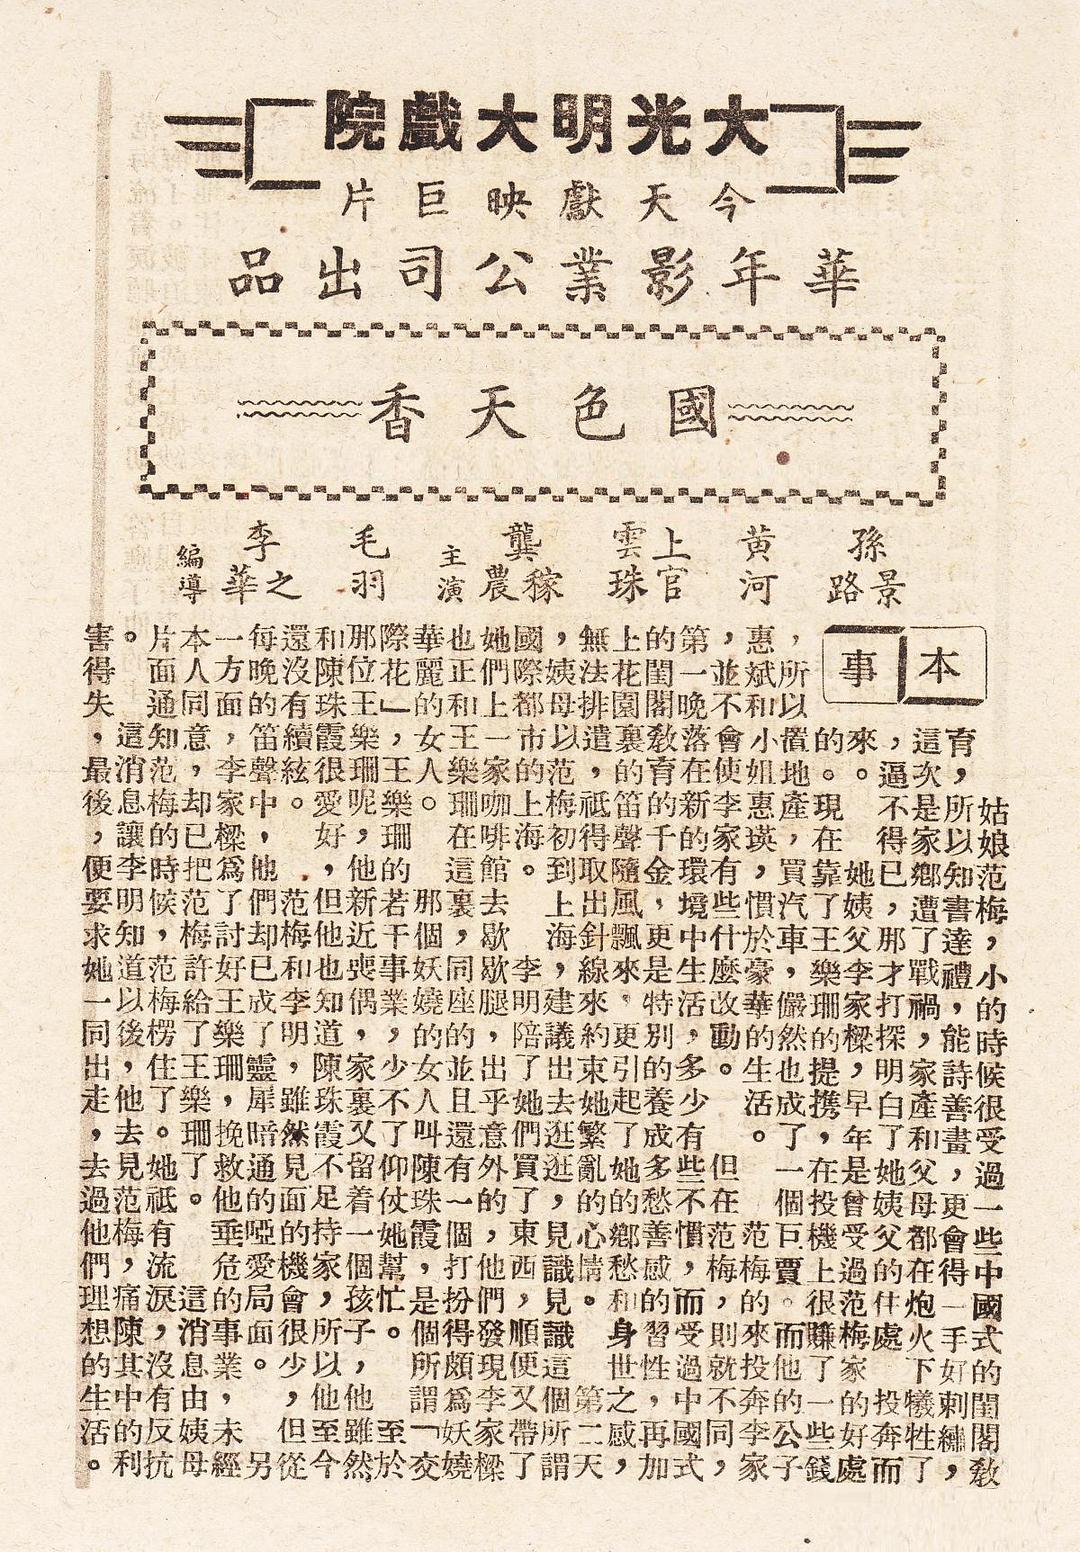 大光明大戲院
今天獻映巨片
華年影業公司出品
國色天香
孫景路 黃河 上官雲珠 龔稼農 主演 毛羽 李之華 編導
本事
姑娘范梅,小的時候很受過一些中國式的閨閣敎
育,所以知書達禮,能詩善畫,更會得一手好刺繡,
這次是家鄉遭了戰禍,家產和父母都在炮火下犧牲了
,逼不得已,那才打探明白了她姨父的住處 投奔而
來。 她姨父李家樑,早年是曾受過范梅家的好處
的。現在靠了王樂珊的提携,在投機上很賺了一些錢
,所以置地產,買汽車,儼然也成了一個巨賈。而他的公子
惠斌和小姐惠瑛,慣於豪華的生活。 范梅的來投奔李家
,並不會使李家有些什麼改動。 但在范梅,則就不同,
第一晚落在新的環境中生活,多少有些不慣,而受過中國式
的閨閣敎育的千金,更是特別的養成多愁善感的習性,再加
上花園裏的笛聲隨風飄來,更引起了她的鄉愁和身世之感,
無法排遣,祇得取出針線來約束她繁亂的心情。 第二天
,姨母以范梅初到上海,建議出去逛逛,見識見識這個所謂
國際都市的上海。 李明陪了她們買了東西,順便又帶了
她們上一家咖啡館去歇歇腿,出乎意外的,他們發現李家樑
也正和王樂珊在這裏,同座的並且還有一個打扮得頗爲妖嬈
華麗的女人。 那個妖嬈的女人叫陳珠霞,是個所謂「交
際花」,王樂珊的若干事業,少不了仰仗她幫忙。 至於
那位王樂珊呢,他新近喪偶,家裏又留着一個孩子,他雖然
和陳珠霞很愛好,但他也知道陳珠霞不足持家,所以他至今
還沒有續絃。 范梅和李明,雖然見面的機會很少,但從
每晚的笛聲中,他們却已成了靈犀暗通的啞愛局面。 另
一方面,李家樑爲了討好王樂珊,挽救他垂危的事業,未經
本人同意,却已把范梅許給了王樂珊了。 這消息由姨母
片面通知范梅的時候,范梅楞住了。她祇有流淚,沒有反抗
。 這消息讓李明知道以後,他去見范梅,痛陳其中的利
害得失,最後,便要求她一同出走,去過他們理想的生活。